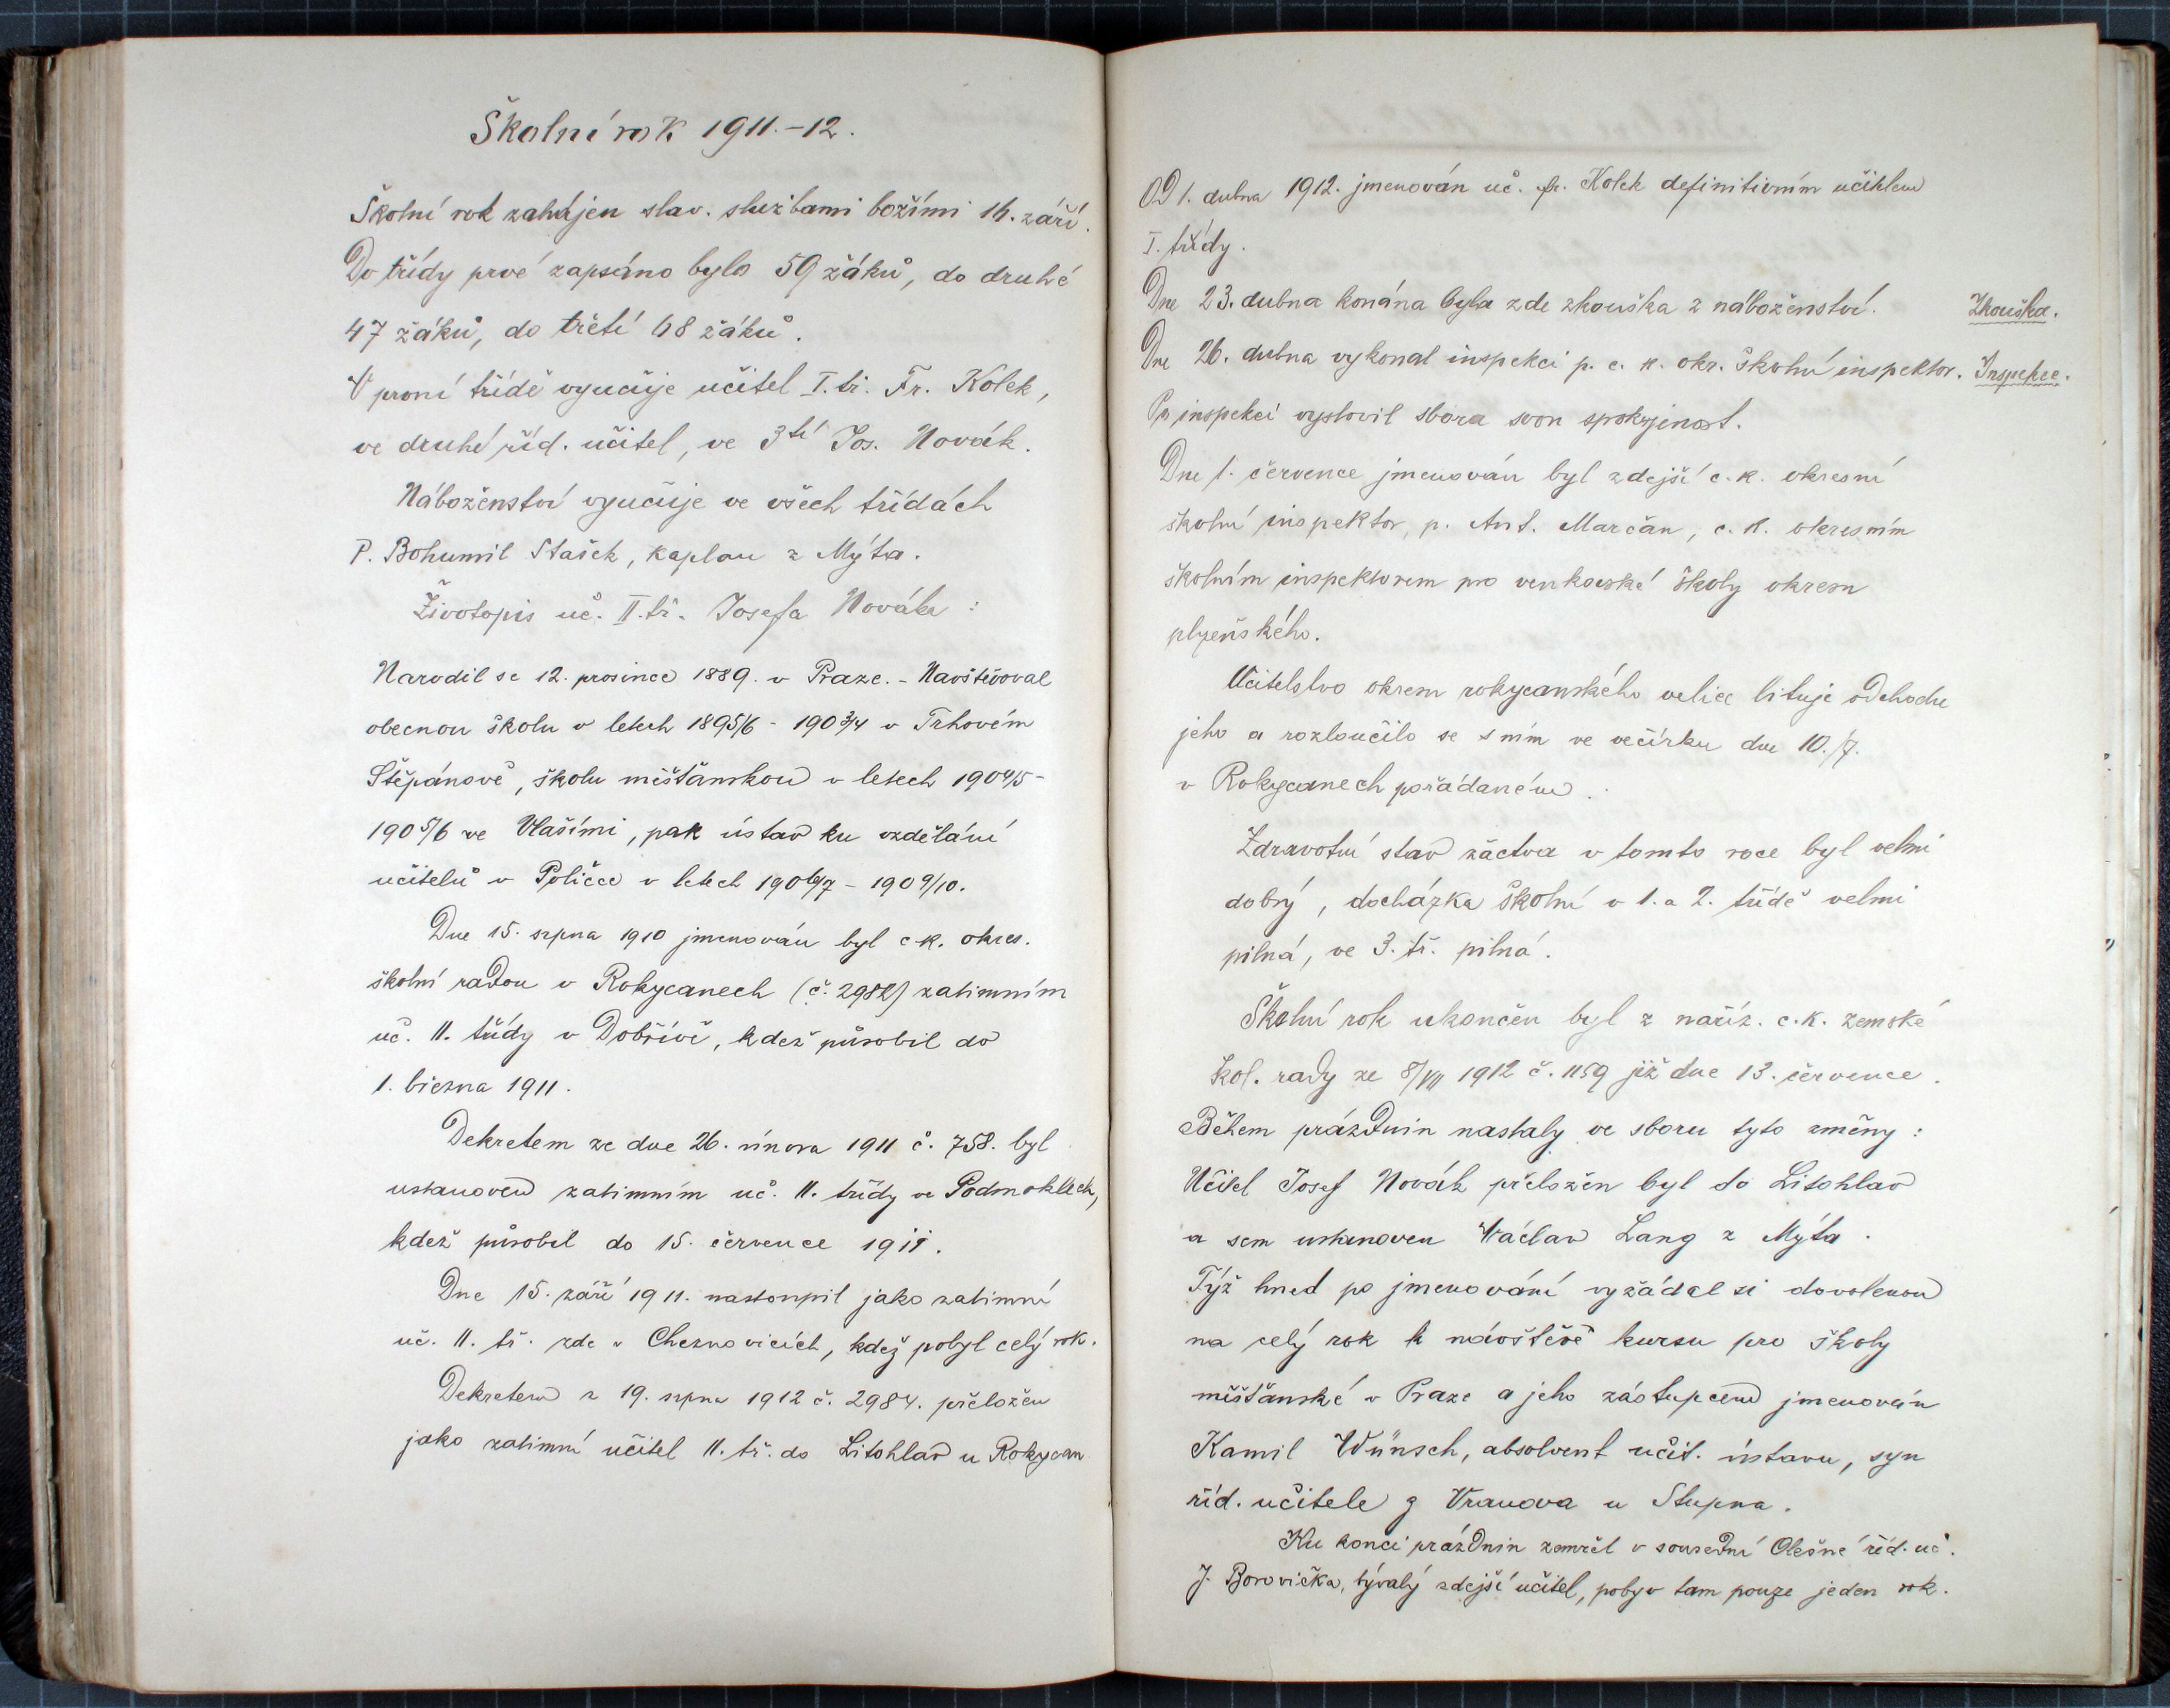 Školní rok 1911.-12.
Školní rok zahájen slav. službami božími 16. září.
Do třídy prvé zapsáno bylo 59 žáků, do druhé
47 žáků, do třetí 68 žáků.
V první třídě vyučuje učitel I. tř. Fr. Kolek,
ve druhé říd. učitel, ve 3tí Jos. Novák.
Náboženství vyučuje ve všech třídách
P. Bohumil Stašek, kaplan z Mýta.
Životopis uč. II. tř. Josefa Nováka:
Narodil se 12. prosince 1889. v Praze. - Navštěvoval
obecnou školu v letech 1895/6 - 1903/4 v Trhovém
Štěpánově, školu měšťanskou v letech 1904/5 -
1905/6 ve Vlašimi, pak ústav ku vzdělání
učitelů v Poličce v letech 1906/7 - 1909/10.
Dne 15. srpna 1910 jmenován byl c. k. okres.
školní radou v Rokycanech (č. 2982) zatimním
uč. II. třídy v Dobřívě, kdež působil do
1. března 1911.
Dekretem ze dne 26. února 1911 č. 758. byl
ustanoven zatimním uč. II. třídy ve Podmoklech,
kdež působil do 15. července 1911.
Dne 15. září 1911. nastoupil jako zatimní
uč. II. tř. zde v Cheznovicích, kdež pobyl celý rok.
Dekretem z 19. srpna 1912 č. 2984. přeložen
jako zatimní učitel II. tř. do Litohlav u Rokycan
Od 1. dubna 1912. jmenován uč. Fr. Kolek definitivním učitelem
I. třídy.
Dne 23. dubna konána byla zde zkouška z náboženství. Zkouška.
Dne 26. dubna vykonal inspekci p. c. k. okr. školní inspektor. Inspekce.
Po inspekci vyslovil sboru svou spokojenost.
Dne 1. července jmenován byl zdejší c. k. okresní
školní inspektor, p. Ant. Marčan, c. k. okresním
školním inspektorem pro venkovské školy okresu
plzeňského.
Učitelstvo okresu rokycanského velice lituje odchodu
jeho a rozloučilo se s ním ve večírku dne 10./7.
v Rokycanech pořádaném.
Zdravotní stav žactva v tomto roce byl velmi
dobrý, docházka školní v 1. a 2. třídě velmi
pilná, ve 3. tř. pilná.
Školní rok ukončen byl z naříz. c. k. zemské
škol. rady ze 8/VII 1912 č. 1159 již dne 13. července.
Během prázdnin nastaly ve sboru tyto změny:
Učitel Josef Novák přeložen byl do Litohlav
a sem ustanoven Václav Lang z Mýta.
Týž hned po jmenování vyžádal si dovolenou
na celý rok k návštěvě kursu pro školy
měšťanské v Praze a jeho zástupcem jmenován
Kamil Wünsch, absolvent učit. ústavu, syn
říd. učitele z Vranova u Stupna.
Ku konci prázdnin zemřel v sousední Olešné říd. uč.
J. Borovička, bývalý zdejší učitel, pobyv tam pouze jeden rok.